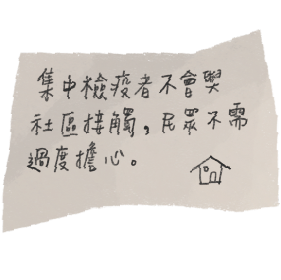 集中檢疫者不會與
社區接觸，民眾不需
過度擔心。